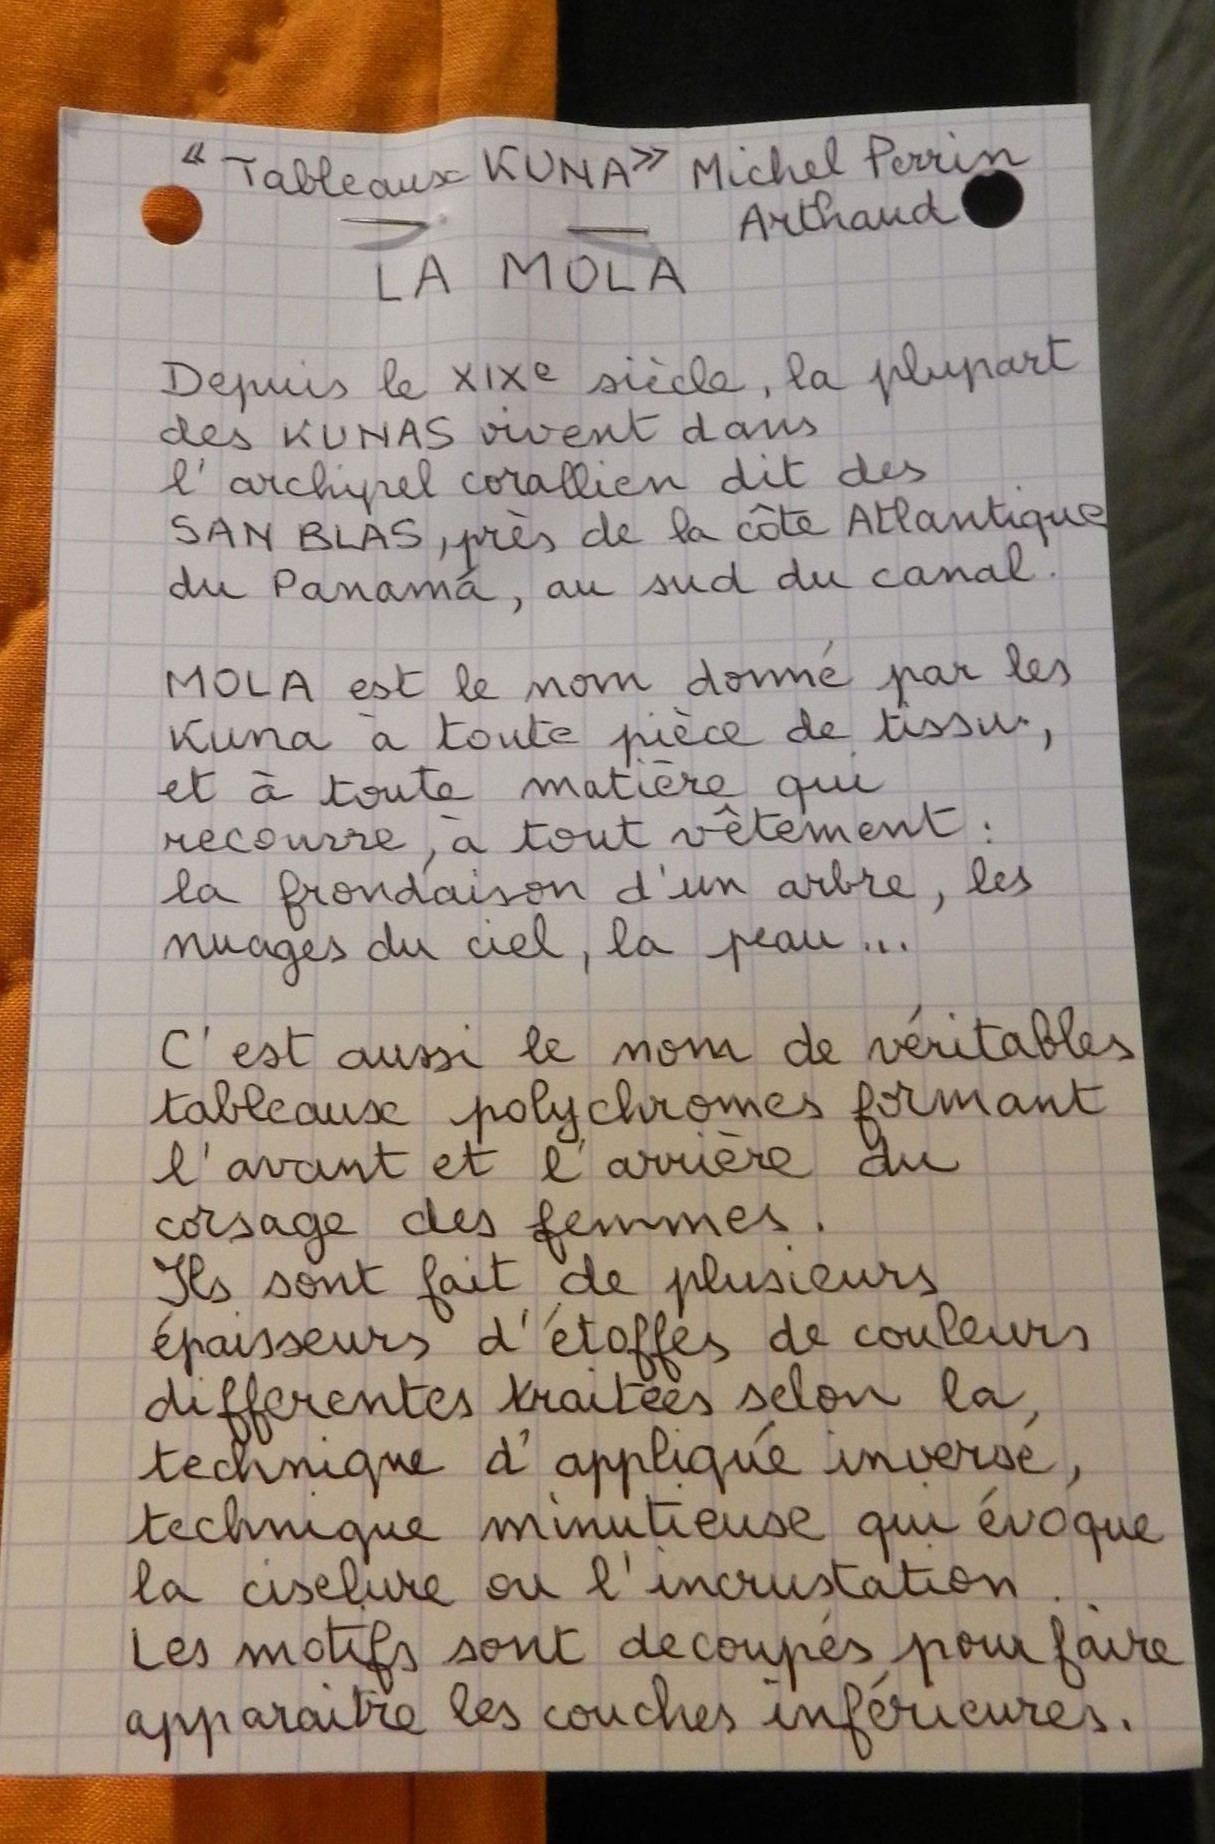 « Tableaux KUNA » Michel Perrin
Arthaud
LA MOLA
Depuis le XIXe siècle, la plupart
des KUNAS vivent dans
l'archipel corallien dit des
SAN BLAS, près de la côte Atlantique
du Panamá, au sud du canal.
MOLA est le nom donné par les
Kuna à toute pièce de tissu,
et à toute matière qui
recouvre, à tout vêtement :
la frondaison d'un arbre, les
nuages du ciel, la peau...
C'est aussi le nom de véritables
tableaux polychromes formant
l'avant et l'arrière du
corsage des femmes.
Ils sont fait de plusieurs
épaisseurs d'étoffes de couleurs
differentes traitées selon la
technique d'appliqué inversé,
technique minutieuse qui évoque
la ciselure ou l'incrustation.
Les motifs sont decoupés pour faire
apparaitre les couches inférieures.